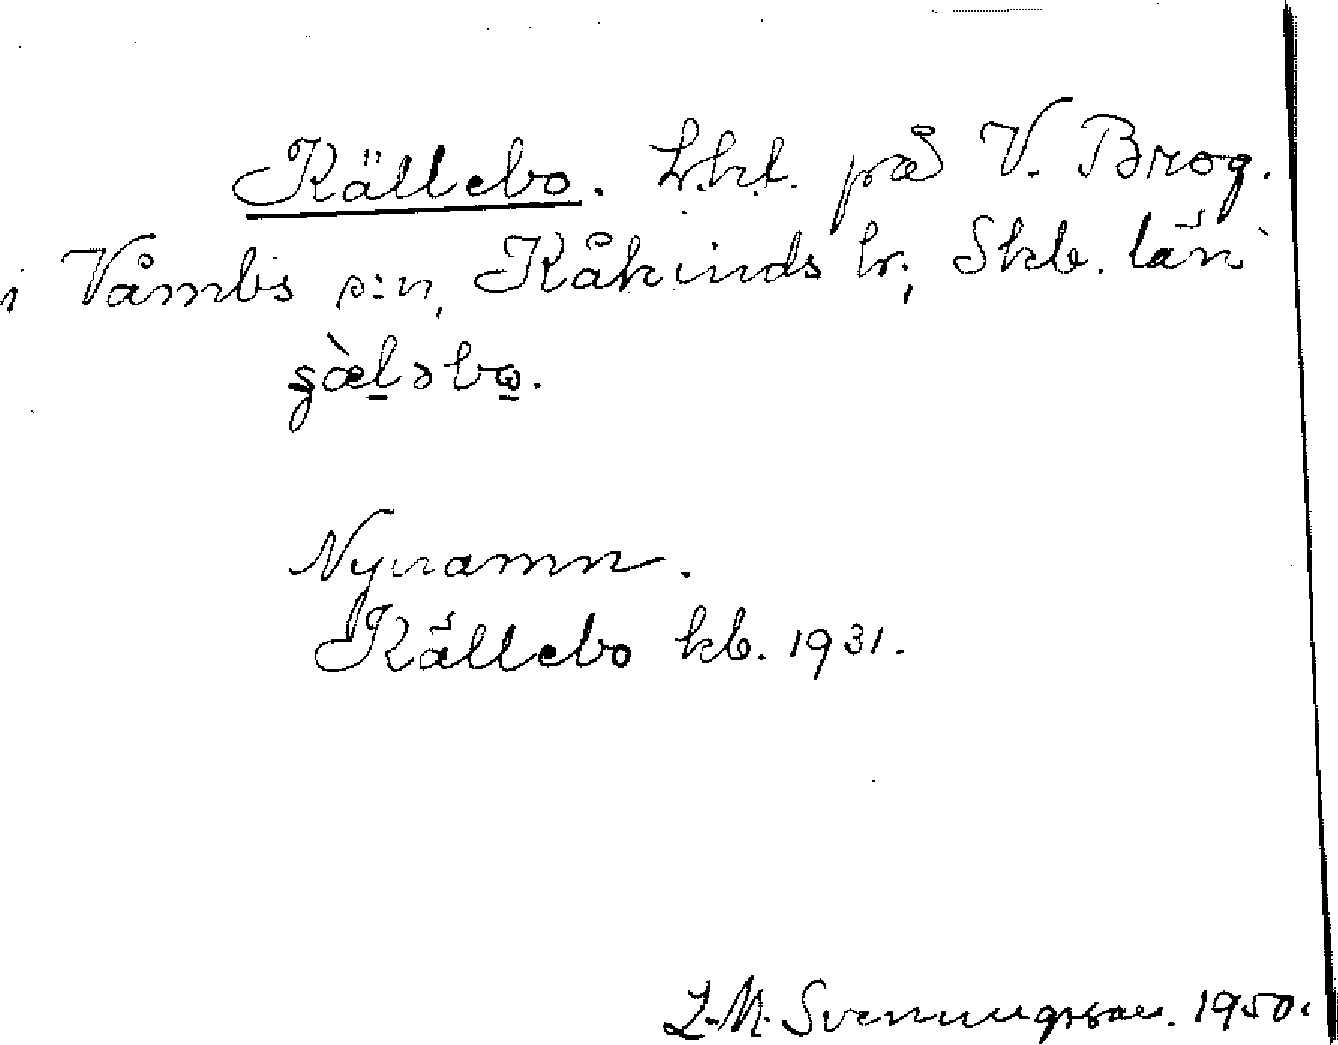 Källebo. Lht. på V. Brog.
i Våmbs s:n, Kåkinds hr, Skb. län
Nynamn.
Källebo kb. 1931.
L.M. Svenungsson. 1950.